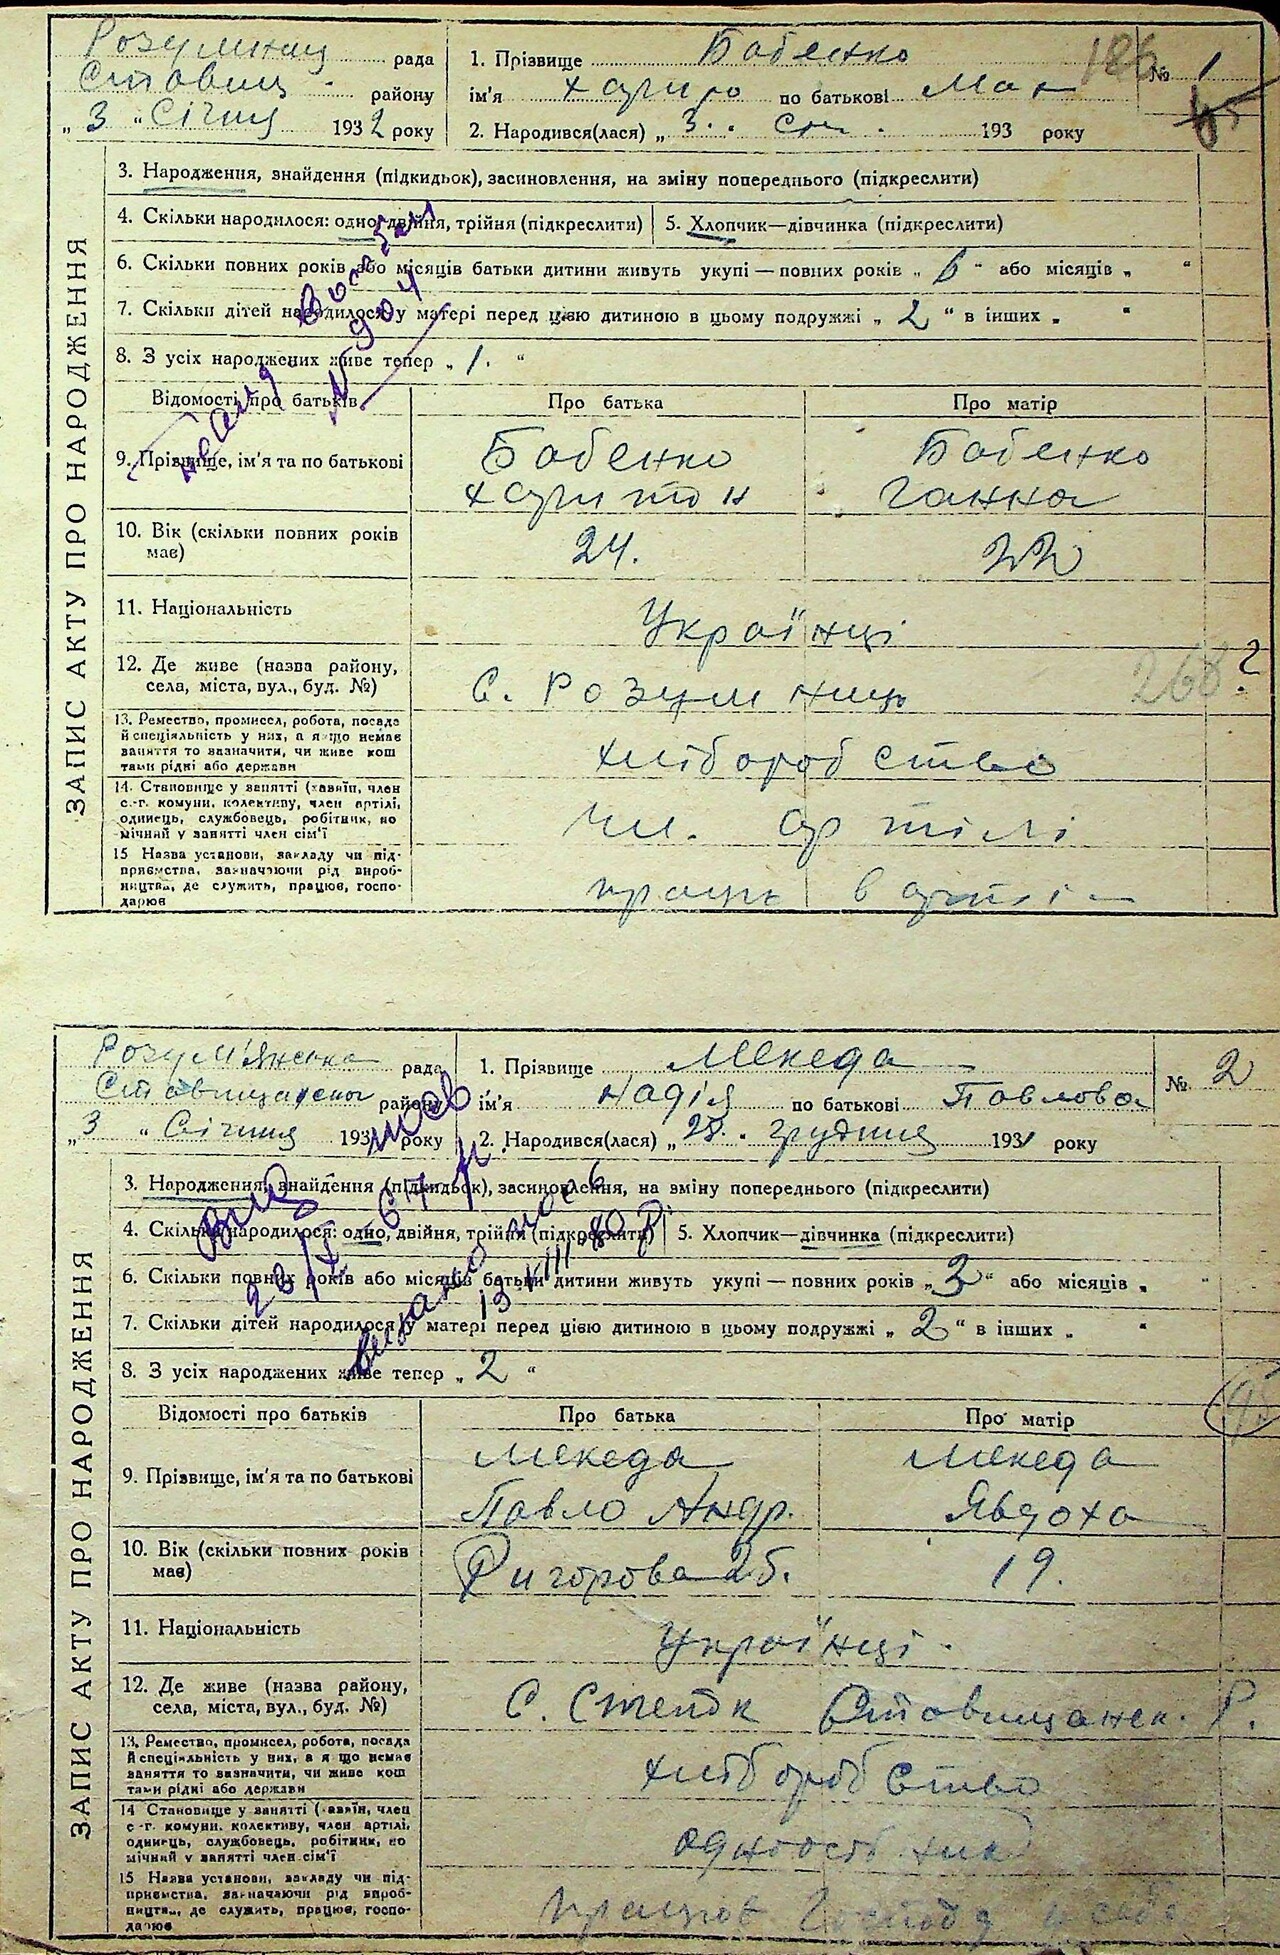 рада
району
„ 3 „ Січня 1932 року
1. Прізвище Бабенко
ім'я по батькові
2. Народився(лася) „ 3. 193 року
№ 1
186
ЗАПИС АКТУ ПРО НАРОДЖЕННЯ
3. Народження, знайдення (підкидьок), засиновлення, на зміну попереднього (підкреслити)
4. Скільки народилося: одно, двійня, трійня (підкреслити)
5. Хлопчик—дівчинка (підкреслити)
6. Скільки повних років або місяців батьки дитини живуть укупі — повних років „ 6 " або місяців „ "
7. Скільки дітей народилося у матері перед цією дитиною в цьому подружжі „ 2 " в інших „ "
8. З усіх народжених живе тепер „ 1. "
№ 904
Відомості про батьків
Про батька
Про матір
9. Прізвище, ім'я та по батькові
Бабенко
Харитон
Бабенко
Ганна
10. Вік (скільки повних років
має)
24.
22
11. Національність
Українці
12. Де живе (назва району,
села, міста, вул., буд. №)
С. Розумниць
268 ?
13. Ремество, промисел, робота, посада
й спеціяльність у них, а якщо немає
заняття то зазначити, чи живе кош
тами рідні або держави
хліборобство
14. Становище у занятті (хазяїн, член
с.-г. комуни, колективу, член артілі,
одинець, службовець, робітник, по
мічний у занятті член сім'ї
чл. артілі
15 Назва установи, закладу чи під-
приємства, зазначаючи рід вироб-
ництва, де служить, працює, госпо-
дарює
в артілі
рада
району
„ 3 „ Січня 193 року
1. Прізвище Мекеда
ім'я Надія по батькові Павлова
2. Народився(лася) „ 28. грудня 1931 року
№ 2
ЗАПИС АКТУ ПРО НАРОДЖЕННЯ
3. Народження, знайдення (підкидьок), засиновлення, на зміну попереднього (підкреслити)
4. Скільки народилося: одно, двійня, трійня (підкреслити)
5. Хлопчик—дівчинка (підкреслити)
6. Скільки повних років або місяців батьки дитини живуть укупі — повних років „ 3 " або місяців „ "
7. Скільки дітей народилося у матері перед цією дитиною в цьому подружжі „ 2 " в інших „ "
8. З усіх народжених живе тепер „ 2 "
Відомості про батьків
Про батька
Про матір
9. Прізвище, ім'я та по батькові
Мекеда
Павло Андр.
Мекеда
Явдоха
10. Вік (скільки повних років
має)
25.
19.
11. Національність
Українці.
12. Де живе (назва району,
села, міста, вул., буд. №)
С. Степок Ставищанськ. Р.
13. Ремество, промисел, робота, посада
й спеціяльність у них, а якщо немає
заняття то зазначити, чи живе кош
тами рідні або держави
хліборобство
14 Становище у занятті (хазяїн, член
с-г. комуни. колективу, член артілі,
одинець, службовець, робітник, по
мічний у занятті член сім'ї
одноосібник
15 Назва установи, закладу чи під-
приємства, зазначаючи рід вироб-
ництва, де служить, працює, госпо-
дарює